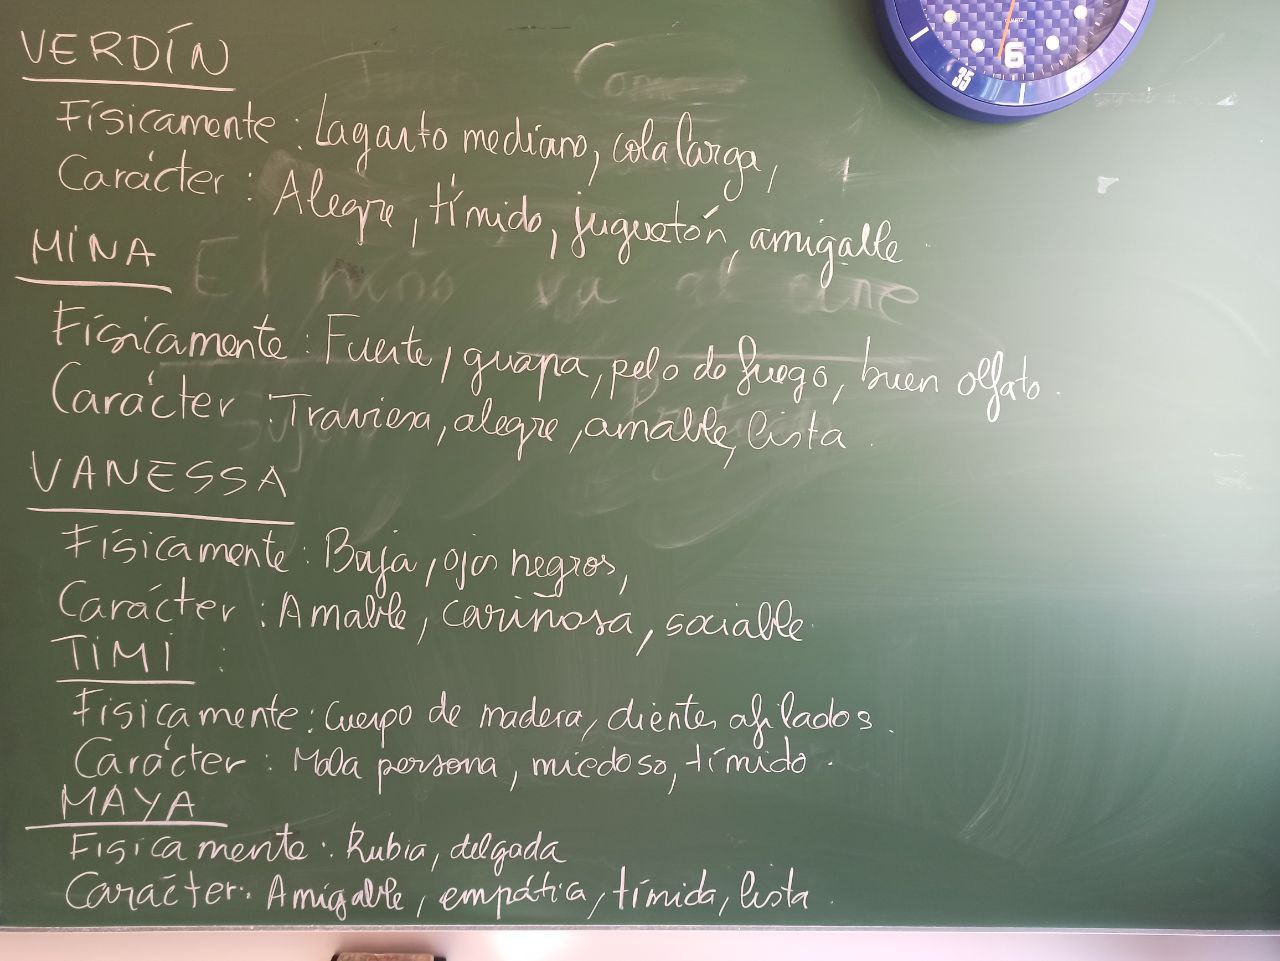 VERDÍN
Físicamente: Lagarto mediano, cola larga,
Carácter: Alegre, tímido, juguetón, amigable.
MINA
El niño va al cine
Físicamente: Fuerte, guapa, pelo de fuego, buen olfato.
Carácter: Traviesa, alegre, amable, lista.
VANESSA
Físicamente: Baja, ojos negros,
Carácter: Amable, cariñosa, sociable.
TIMI:
Físicamente: Cuerpo de madera, dientes afilados.
Carácter: Mala persona, miedoso, tímido.
MAYA
Físicamente: Rubia, delgada
Carácter: Amigable, empática, tímida, lista.
QUARTZ
6
35